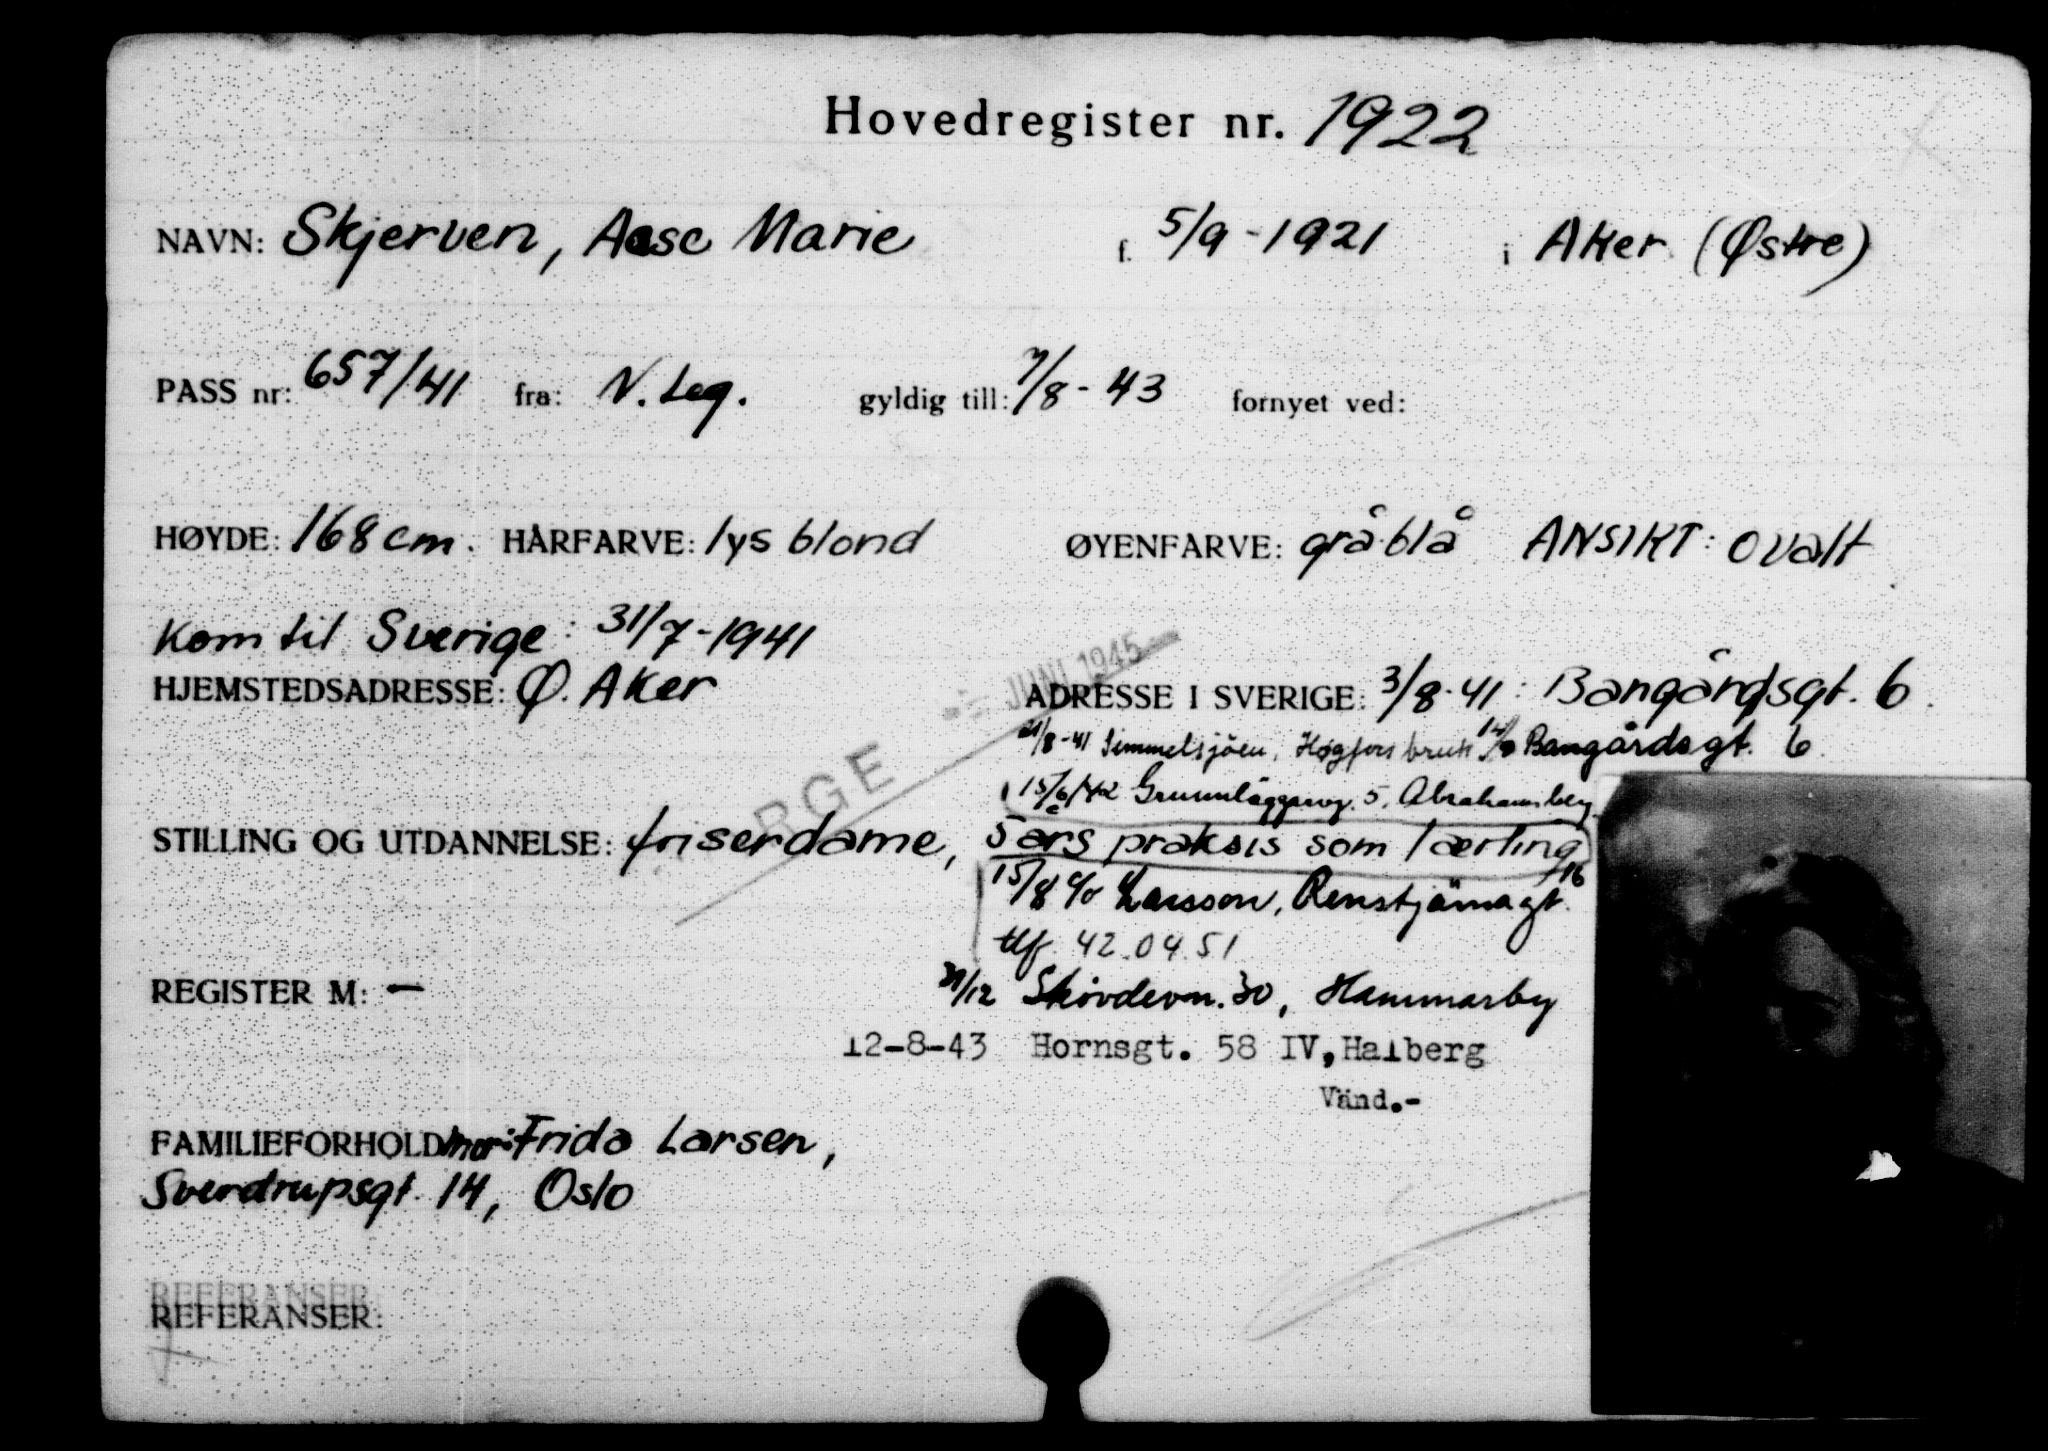 Hovedregister nr. 1922
NAVN: Skjerven, Aase Marie f. 5/9-1921 i Aker (Østre)
PASS nr: 657/41 fra: N. Leg. gyldig till: 7/8-43 fornyet ved:
HØYDE: 168 cm. HÅRFARVE: lys blond ØYENFARVE: grå-blå ANSIKT: ovalt
Kom til Sverige: 31/7-1941
JUNI 1945
HJEMSTEDSADRESSE: Ø. Aker ADRESSE I SVERIGE: 3/8-41: Bangårdsgt. 6.
21/8-41 Simmelsjöen, Høgfors bruk Bangårdsgt. 6.
RGE
15/6/42 5, Abrahamsberg
STILLING OG UTDANNELSE: friserdame, 5 års praksis som lærling
15/8 c/o Larsson, Renstjärnagt. 16
tlf. 42.04.51
REGISTER M: — 31/12 Skövdevn. 30, Hammarby
12-8-43 Hornsgt. 58 IV, Halberg
Vänd.-
FAMILIEFORHOLD mor: Frida Larsen,
Sverdrupsgt. 14, Oslo
REFERANSER
REFERANSER: